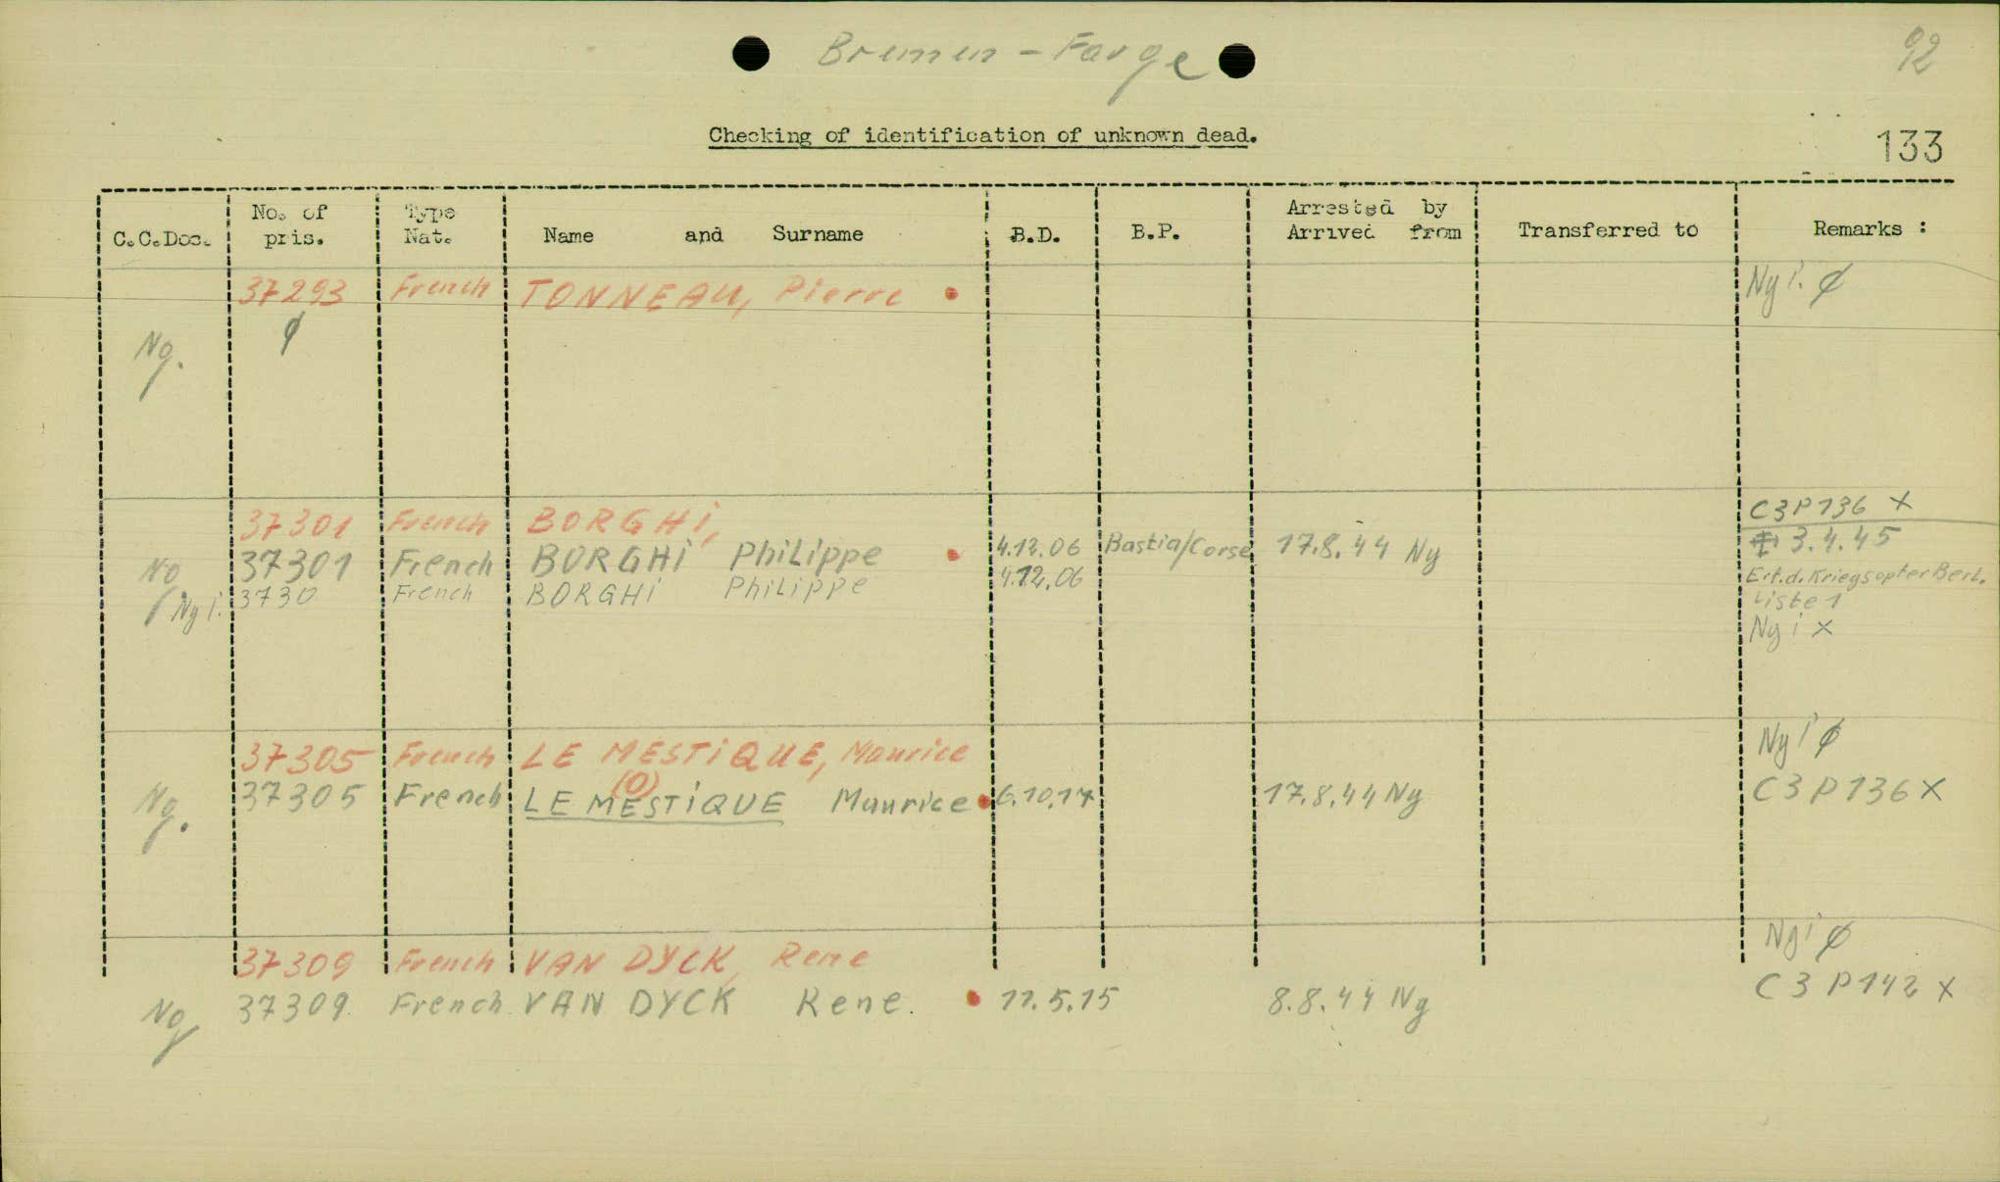 Bremen - Farge
92
Checking of identification of unknown dead.
133
C.C.Doc. No. of pris. Type Nat. Name and Surname B.D. B.P. Arrested by Arrived from Transferred to Remarks :
37293 French TONNEAU, Pierre Ny i. ∅
Ng. ∅
37301 French BORGHi, C3P136 X
Ng 37301 French BORGHi PhiLippe 4.12.06 Bastia/Corse 17.8.44 Ny 3.4.45
Ny i. 3730 French BORGHi PhiLippe 4.12.06 Ert.d.KriegsopferBerl.
Liste 1
Ny i X
37305 French LE MESTiQUE, Maurice Ny i ∅
(O)
Ng. 37305 French LE MESTiQUE Maurice 6.10.17 17.8.44 Ny C3P136 X
37309 French VAN DYCK, Rene Ny i ∅
Ng 37309. French VAN DYCK Rene. 11.5.15 8.8.44 Ny C3P142 X